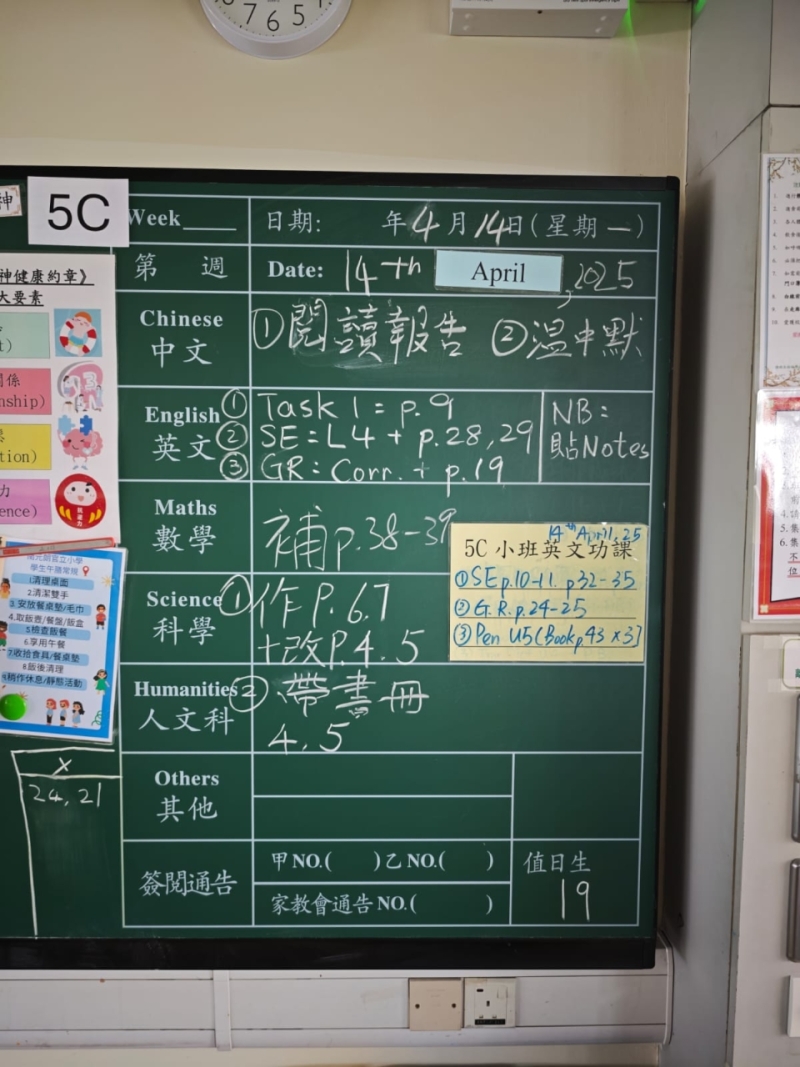 7 6 5
神
5C
Week
日期: 年4月14日(星期一)
第 週
Date: 14th April, 2025
神健康約章》
大要素
Chinese
中文
①閱讀報告 ②溫中默
English
英文
① Task 1 = p.9
② SE = L4 + p.28, 29
③ GR: Corr. + p.19
NB:
貼Notes
Maths
數學
補p.38-39
14th April, 25
5C 小班英文功課
①SE p.10-11. p32-35
②G.R. p.24-25
③Pen U5 (Book p43 x3)
Science
科學
① 作 P.6.7
+改P.4.5
Humanities
人文科
② 帶書冊
4.5
Others
其他
簽閱通告
甲NO.( )乙NO.( )
家教會通告NO.( )
值日生
19
係
nship)
tion)
力
ence)
學生午膳常規
1.清理桌面
2.清潔雙手
3.安放餐桌墊/毛巾
4.取飯壺/餐盤/飯盒
5.檢查飯餐
6.享用午餐
7.收拾食具/餐桌墊
8.飯後清理
9.稍作休息/靜態活動
X
24, 21